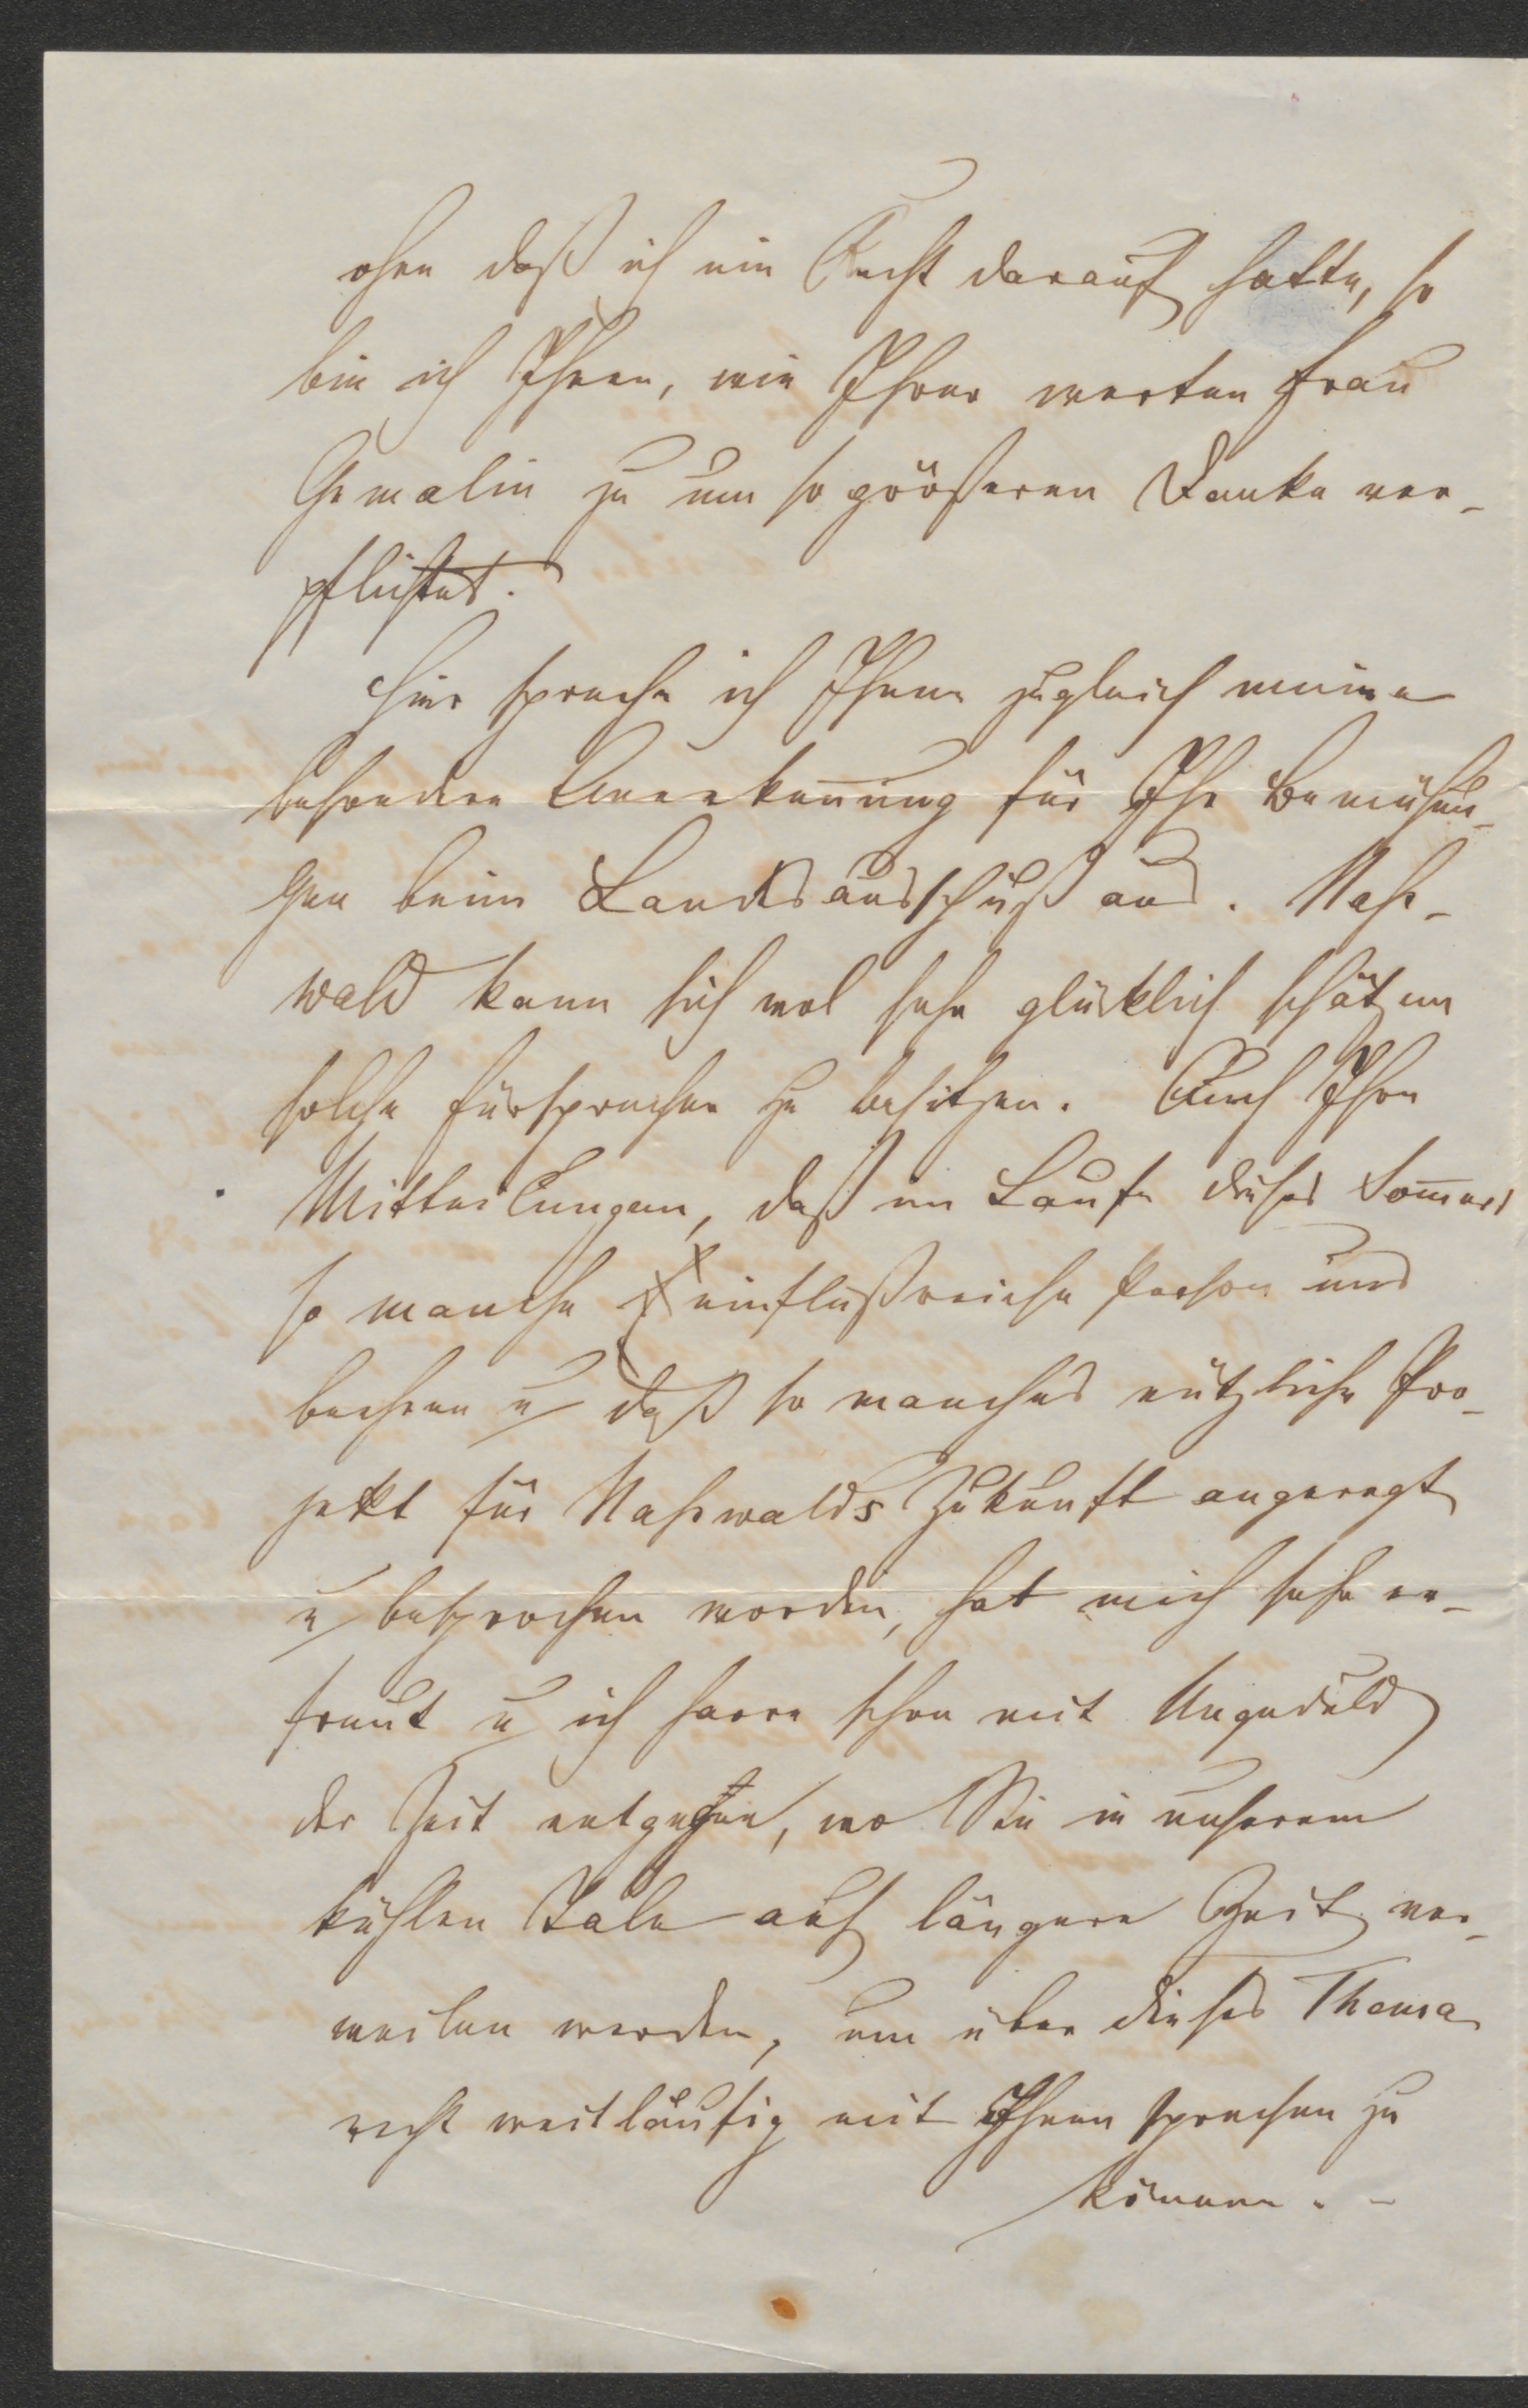 ohne daß ich ein Recht darauf hatte, so
bin ich Ihnen, wie Ihrer werten Frau
Gemalin zu um so größerem Danke ver-
pflichtet.
Hier spreche ich Ihnen zugleich meine
besondere Anerkennung für Ihr Bemühun-
gen beim Landesausschuß aus. Naß-
wald kann sich wol sehr glücklich schätzen
solche Fürsprecher zu besitzen. Auch Ihre
Mitteilungen, daß im Laufe dieses Sommers
so manche einflußreiche Person uns
beehren u daß so manches nützliche Pro-
jekt für Naßwalds Zukunft angeregt
u besprochen worden, hat mich sehr er-
freut u ich harre schon mit Ungeduld
der Zeit entgegen, wo Sie in unserem
kühlen Tale auf längere Zeit ver-
weilen werden, um über dieses Thema
recht weitläufig mit Ihnen sprechen zu
können. -